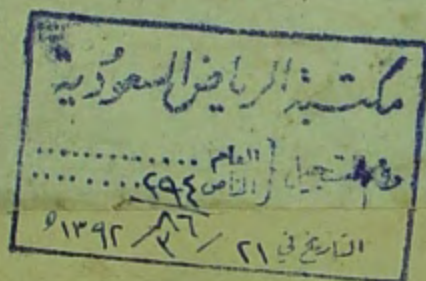 مكتبة الرياض السعودية
رقم التسجيل { العام ............
الخاص ٢٩٤ ........
٨٦
التاريخ في ٢١ / ٣ / ١٣٩٢ ه